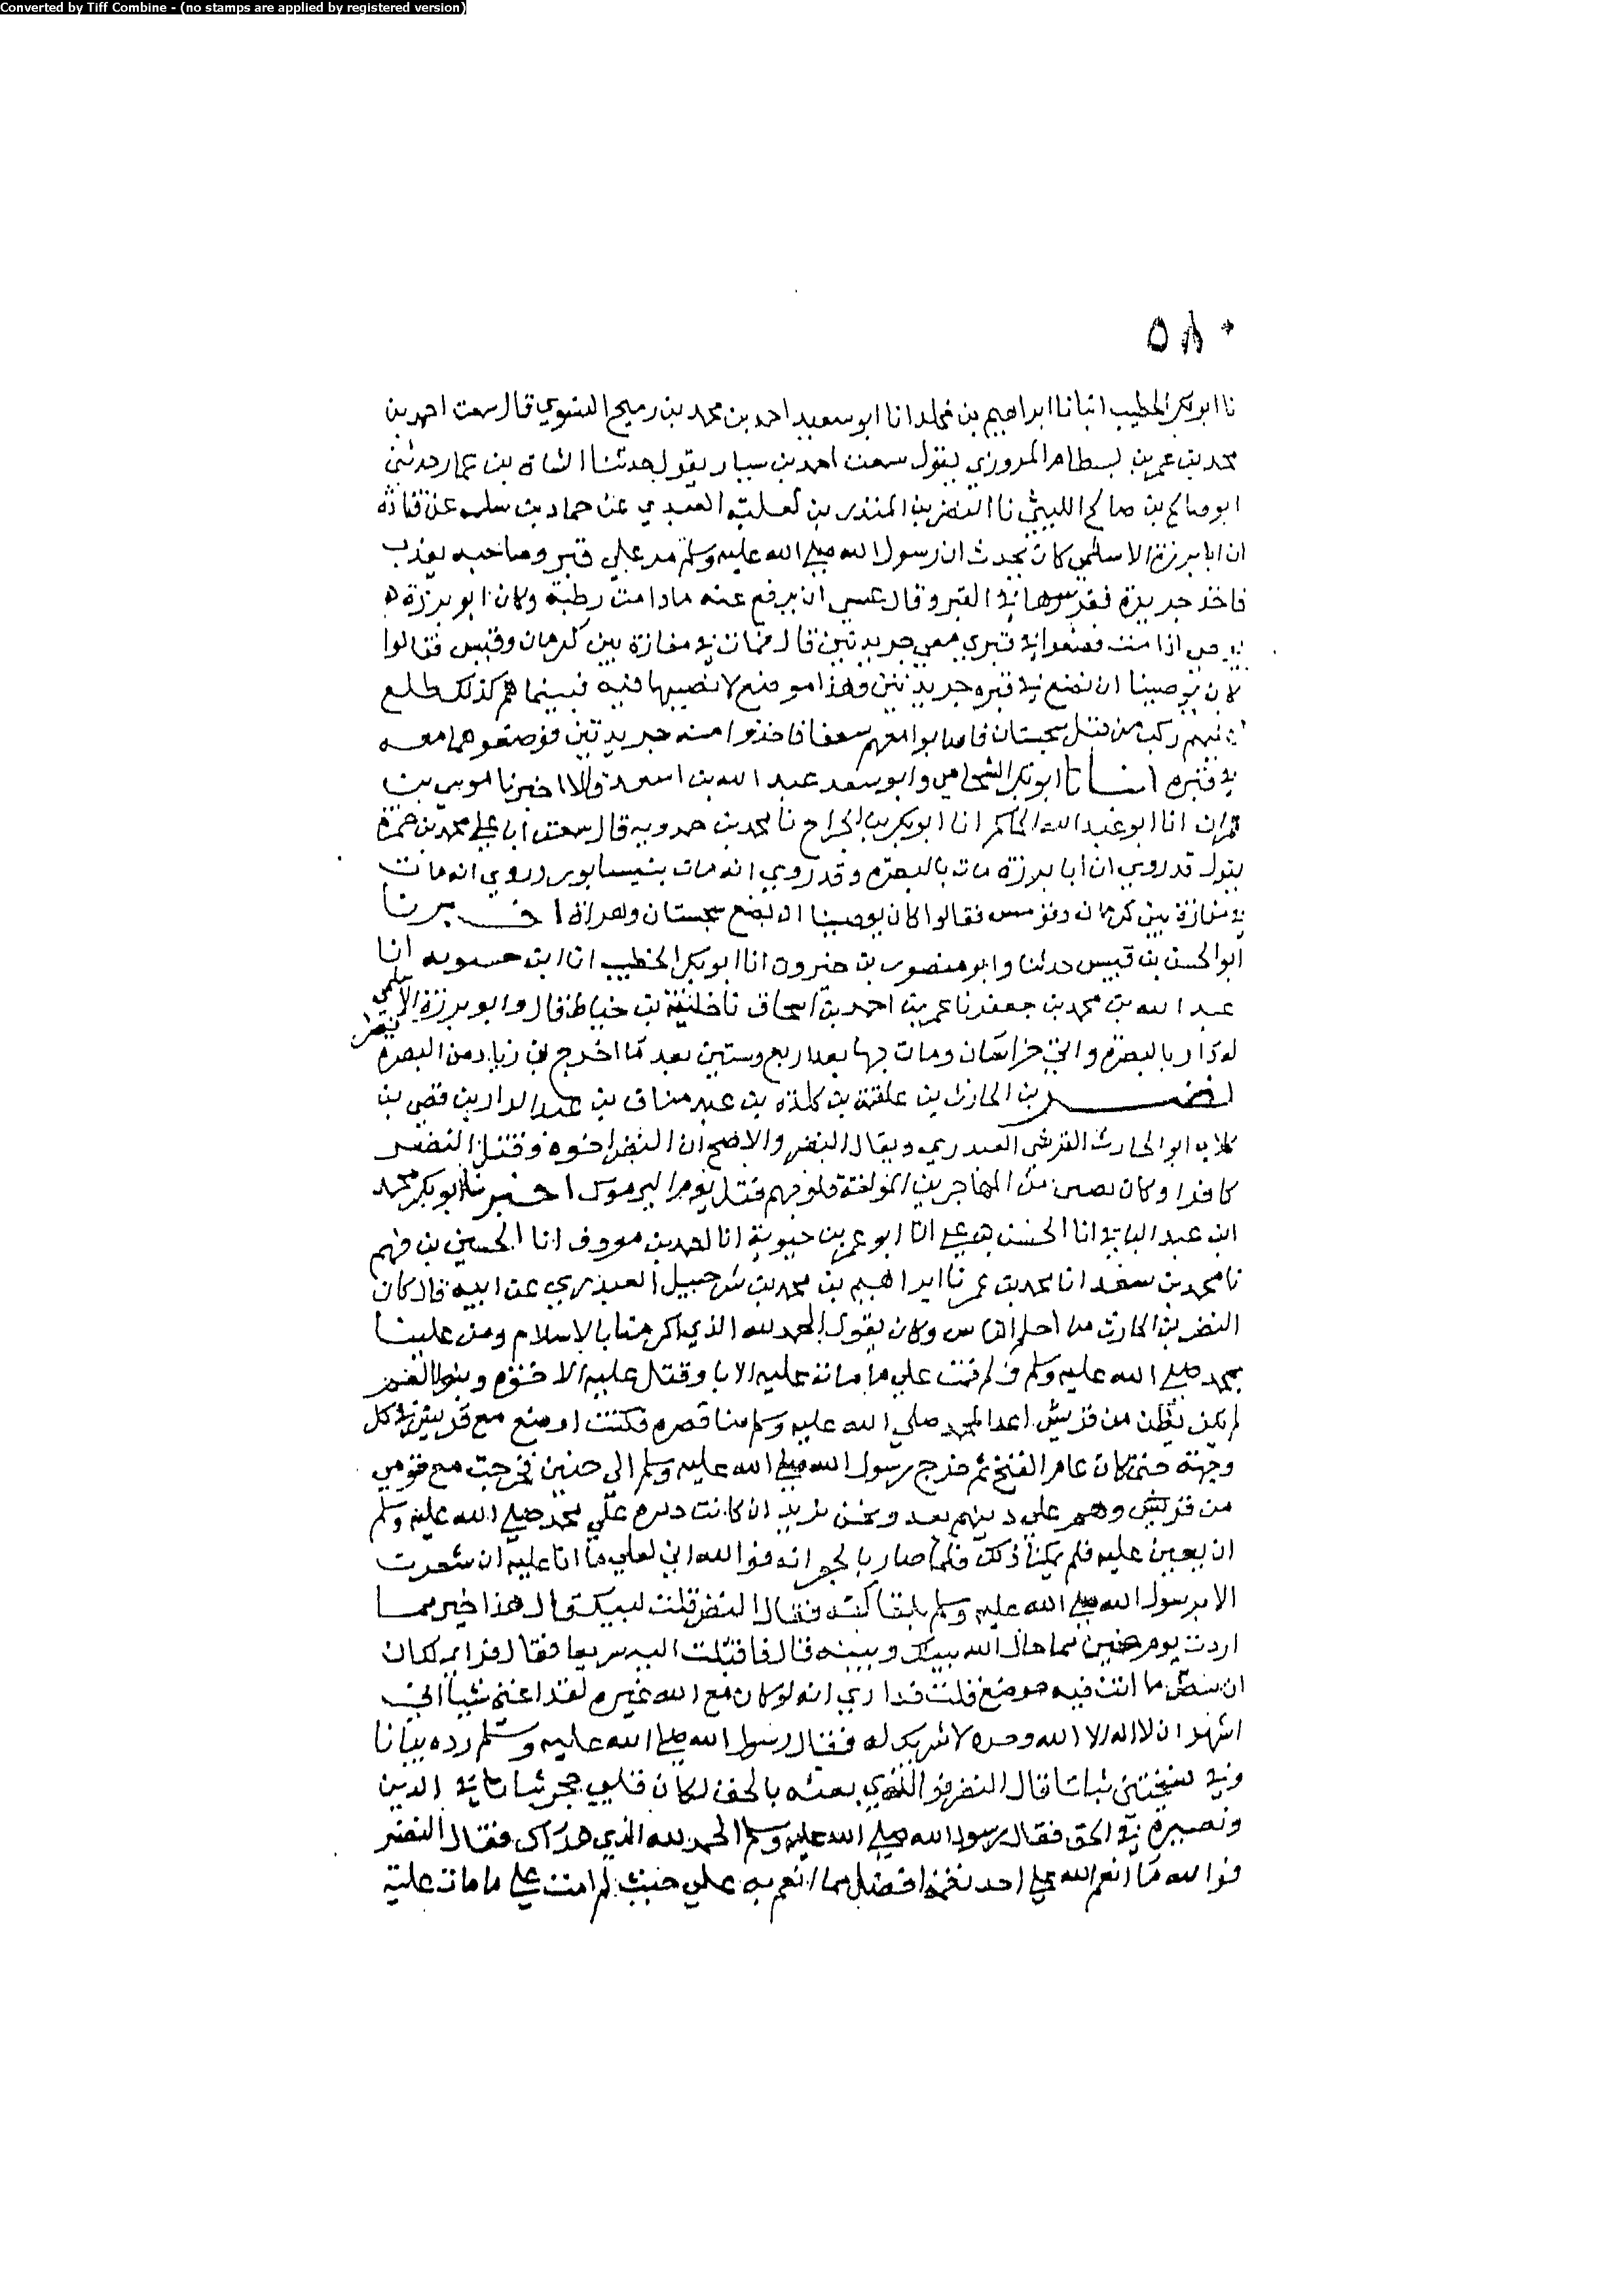 Converted by Tiff Combine - (no stamps are applied by registered version)
٥٨٠
نا ابو بكر الخطيب انبانا ابراهيم بن مخلد انا ابو سعيد احمد بن محمد بن رميح النسوي قال سمعت احمد بن
محمد بن عمر بن بسطام المروزي يقول سمعت احمد بن سيار يقول حدثنا الشاة بن عمار حدثني
ابو صالح بن صالح الليثي نا النضر بن المنذر بن ثعلبة العبدي عن حماد بن سلمه عن قتادة
ان ابا برزة الاسلمي كان يحدث ان رسول الله صلي الله عليه وسلم مر علي قبر وصاحبه يعذب
فاخذ جريدة فغرسها في القبر وقال عسي ان يرفع عنه مادامت رطبة وكان ابو برزة
اذا مت فضعوا في قبري معي جريدتين قال فمات في مفازة بين كرمان وقبيس فقالوا
كان يوصينا ان نضع في قبره جريدتين وهذا موضع لا نصيبها فيه فبينما هم كذلك طلع
ركب من قبل سجستان فاصابوا معهم سعفا فاخذوا منه جريدتين فوضعوهما معه
في قبره انبانا ابو بكر الشحامي وابو سعد عبد الله بن اسعد قالا اخبرنا موسي بن
عمران انا ابو عبد الله الحاكم انا ابو بكر بن الجراح نا محمد بن حمدويه قال سمعت ابا علي محمد بن حمزة
يقول قد روي ان ابا برزة مات بالبصره وقد روي انه مات بنيسابور وروي انه مات
في مفازة بين كرمان وقومس فقالوا كان يوصينا ان يضع سجستان وهراة اخبرنا
ابو الحسن بن قبيس حدثنا وابو منصور بن خيرون انا ابو بكر الخطيب انا ابن حسنويه انا
عبد الله بن محمد بن جعفر نا عمر بن احمد بن اسحاق نا خليفة بن خياط قال وابو برزة الاسلمي
له دار بالبصره واتي خراسان ومات بها بعد اربع وستين بعد ما اخرج ابن زياد من البصره
نضير بن الحارث بن علقمة بن كلدة بن عبد مناف بن عبد الدار بن قصي بن
كلاب ابو الحارث القرشي العبدري ويقال النضر والاصح ان النضر اخوه وقتل النضر
كافرا وكان نصير من المهاجرين المؤلفة قلوبهم قتل يوم اليرموك اخبرنا ابو بكر محمد
ابن عبد الباقي انا الحسن بن علي انا ابو عمر بن حيوية انا احمد بن معروف انا الحسين بن فهم
نا محمد بن سعد انا محمد بن عمر نا ابراهيم بن محمد بن شرحبيل العبدري عن ابيه قال كان
النضر بن الحارث من احلم الناس وكان يقول الحمد لله الذي اكرمنا بالاسلام ومن علينا
بمحمد صلي الله عليه وسلم ولم نمت علي ما مات عليه الابا وقتل عليه الاخوة وبنو العم
لم يكن بطن من قريش اعدا لمحمد صلي الله عليه وسلم منا قصره فكنت اوضع مع قريش في كل
وجهة حتى كان عام الفتح ثم خرج رسول الله صلي الله عليه وسلم الي حنين فخرجت مع قومي
من قريش وهم علي دينهم بعد ونحن نريد ان كانت دبره علي محمد صلي الله عليه وسلم
ان يعين عليه فلم يمكنا ذلك فلما صار بالجعرانه فوالله اني لعلي ما انا عليه ان شعرت
الا برسول الله صلي الله عليه وسلم يلقاني كفة فقال النضر قلت لبيك قال هذا خير مما
اردت يوم حنين مما حال الله بينك وبينه قال فاقبلت اليه سريعا فقال قد ان لك ان
ما انت فيه موضع قلت قد اري انه لو كان مع الله غيره لقد اغني شيا اني
اشهد ان لا اله الا الله وحده لا شريك له فقال رسول الله صلي الله عليه وسلم زده بيانا
وفي نسختين ثباتا قال النضر فوالذي بعثه بالحق لكان قلبي حجر ثباتا في الدين
ونصيرة في الحق فقال رسول الله صلي الله عليه وسلم الحمد لله الذي هداك فقال النضر
فوالله ما انعم الله علي احد نعمة افضل مما انعم به علي حيث لم امت علي ما مات علية